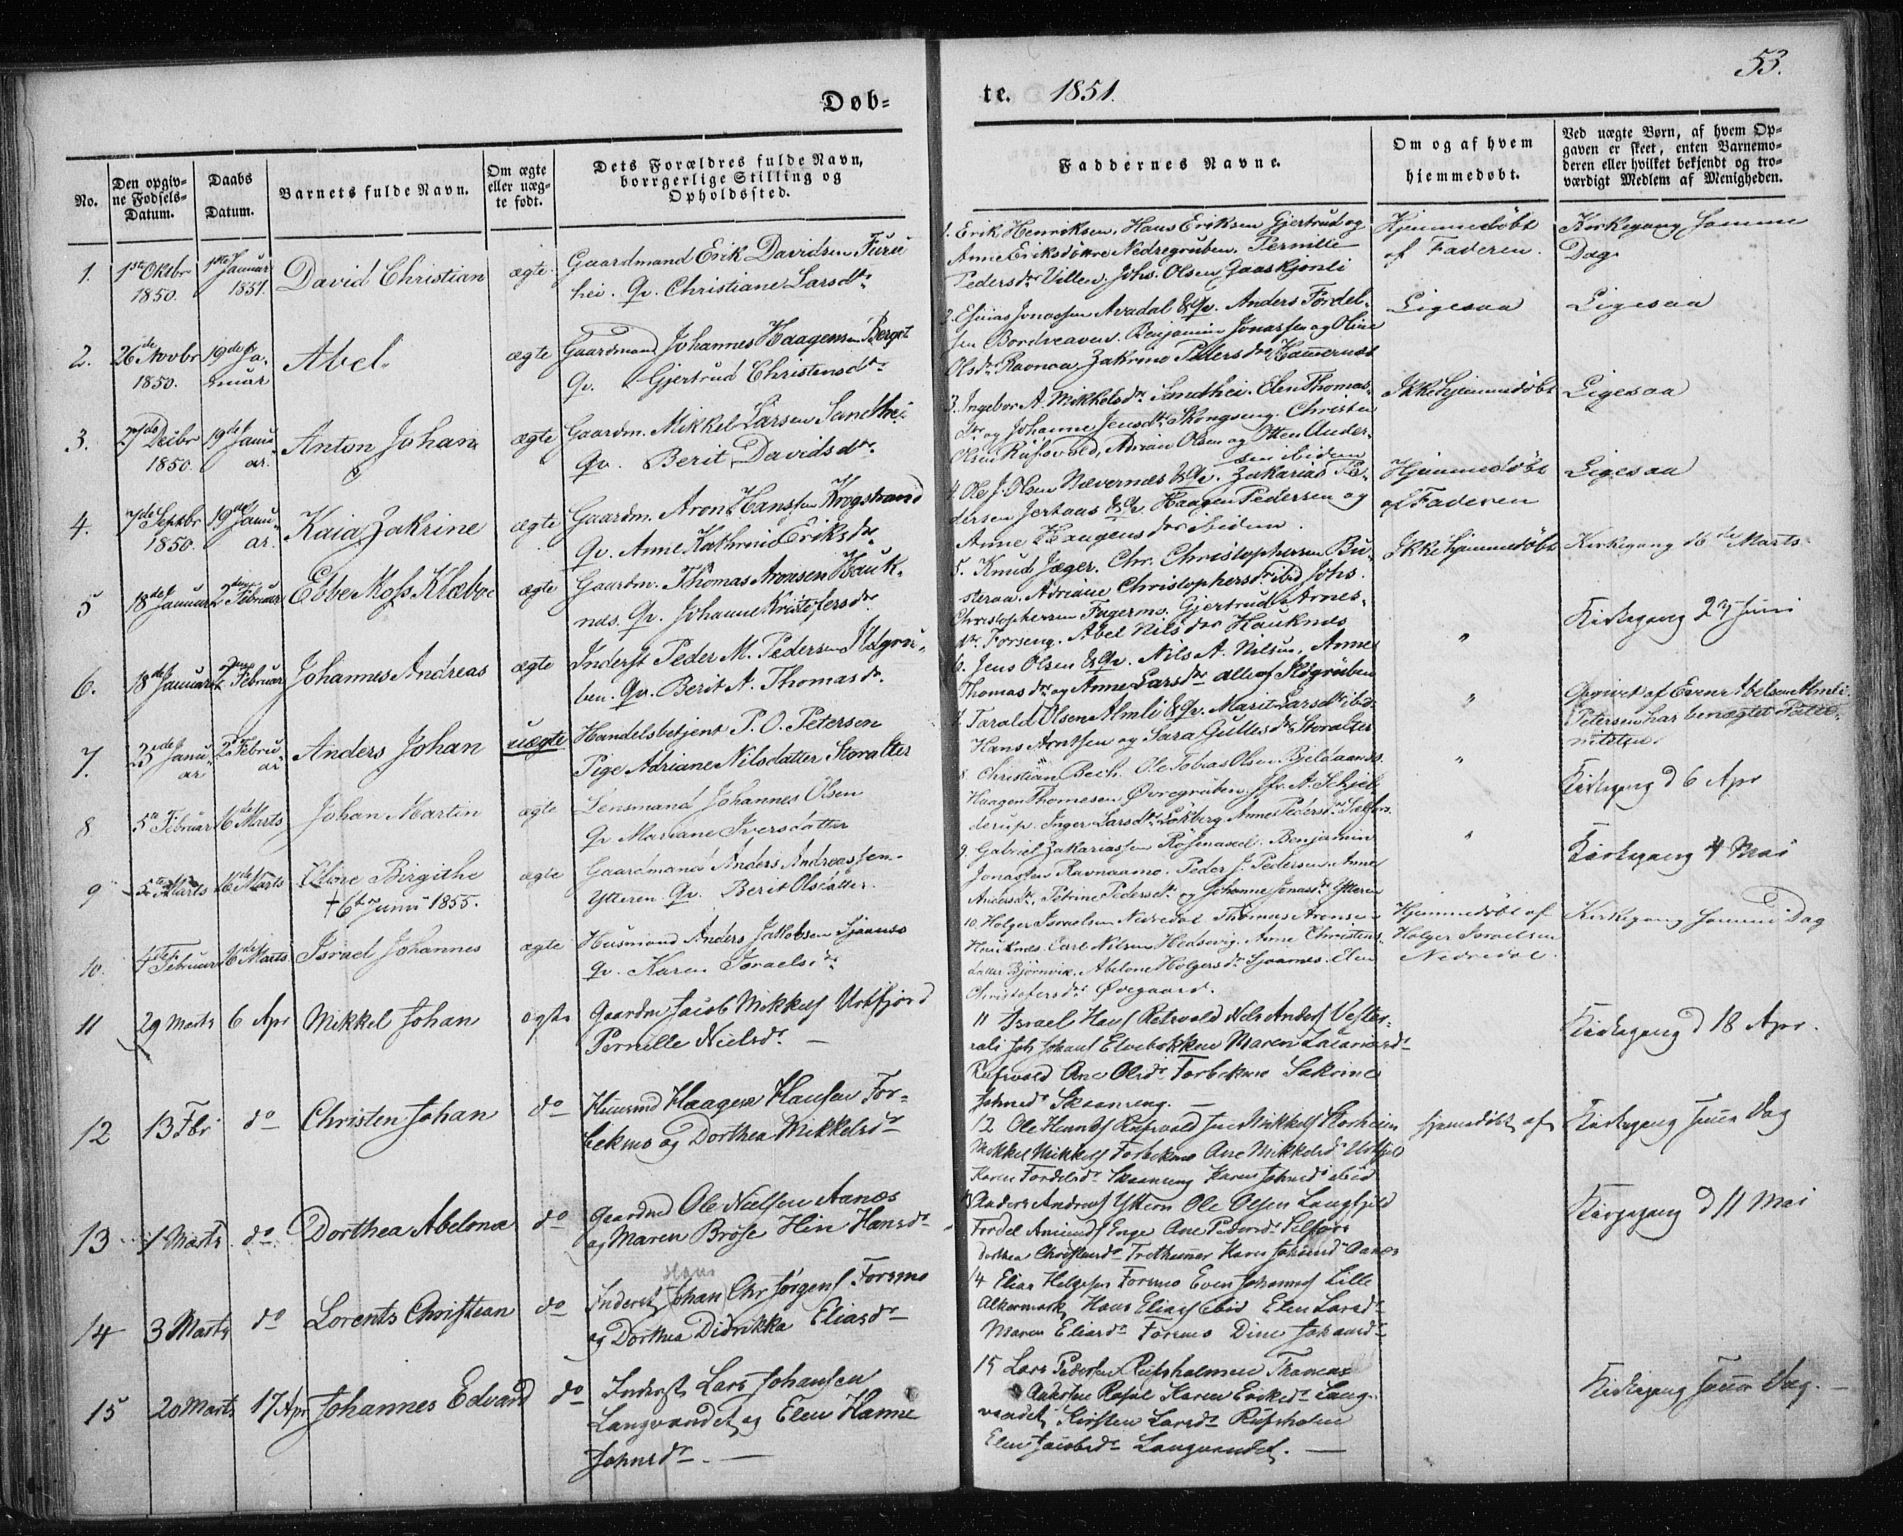 53.
Døb-
te. 1851.
No.
Den opgiv-
ne Fødsels-
Datum.
Daabs
Datum.
Barnets fulde Navn.
Om ægte
eller uæg-
te født.
Dets Forældres fulde Navn,
borrgerlige Stilling og
Opholdssted.
Faddernes Navne.
Om og af hvem
hjemmedøbt.
Ved uægte Børn, af hvem Op-
gaven er skeet, enten Barnemo-
deren eller hvilket bekjendt og tro-
værdigt Medlem af Menigheden.
1.
1ste Oktbr
1850.
1ste Januar
1851.
David Christian
ægte
Gaardmand Erik Davidsen Furu
hei. Qv. Christiane Larsdtr
1. Erik Henriksen, Hans Eriksen Gjertrud og
Anne Eriksdøttre Nedregruben, Pernille
Pedersdr Villen, Johs. Olsen
Hjemmedøbt
af Faderen.
Kirkegang Samme
Dag.
2.
26de Novbr
1850.
19de Ja-
nuar
Abel.
ægte
Gaardmand Johannes Haagensen Berget
Qv. Gjertrud Christensdtr
2. Esaias Jonassen Avadal & Qv. Anders Fordel-
sen Benjamin Jonassen og Oline
Olsdr Ravnaa Zakrine Pedersdr
Ligesaa
Ligesaa
3.
27de Decbr
1850.
19de Janu-
ar.
Anton Johan
ægte
Gaardm. Mikkel Larsen Sandhei
Qv. Berit Davidsdtr.
3. Ingebor A. Mikkelsdr Sandhei. Elen Thomas-
dtr og Johanne Jensdtr Skogseng. Christen
Olsen Røsvold, Adrian Olsen og Otten Ander-
sen ibidem
Ikke hjemmedøbt
Ligesaa
4.
7de Septbr
1850.
19de Janu-
ar.
Kaia Zakrine
ægte
Gaardm. Aron Hanssen Krogstrand
Qv. Anne Kathrine Eriksdr
4. Ole J. Olsen Nævernæs & Qv. Zakarias Pe-
dersen & Qv. Haagen Pedersen og
Anne Haagensdtr ibidem.
Hjemmedøbt
af Faderen
Ligesaa
5
18de Januar
2den Februar
Ebbe Moss Klæboe
ægte
Gaardm. Thomas Aronsen Hauk-
næs. Qv. Johanne Kristofersdr.
5. Knud Jæger. Chr. Christophersen Bu-
steraa. Adriane Christophersdr ibid Johs.
Christophersen Fagermo. Gjertrud Arnes-
dtr Forseng. Abel Nilsdtr Hauknæs
Ikke hjemmedøbt
Kirkegang 16de Marts
6.
18de Januar
2den Februar
Johannes Andreas
ægte
Inderst Peder M. Pedersen Ildgru-
ben. Qv. Berit A. Thomasdr.
6. Jens Olsen & Qv. Nils A. Nilsen, Anne
Thomasdr og Anne Larsdtr alle af Ildgruben
"
Kirkegang 29 Juni
7.
25de Janu-
ar
2den Febru-
ar
Anders Johan
uægte
Handelsbetjent P. O. Petersen
Pige Adriane Nilsdatter Storalter
7. Tarald Olsen Almli & Qv. Marit Larsdtr ibid.
Hans Arntsen og Sara Gullesdtr Storalter
"
Opgivet af Even Abelsen Almli.
Petersen har benægtet Pater-
niteten.
8
5te Februar
16de Marts
Johan Martin
ægte
Lensmand Johannes Olsen
Qv Mariane Iversdatter
8. Christian Bech. Ole Tobias Olsen Bjeldaanes
Haagen Thomesen Øvregruben Jfr. A. Schjel-
derup. Inger Larsdtr Løkberg. Anne Pedersdr Selfors.
"
Kirkegang d 6 Apr
9
5te Marts
16de Marts
Eline Birgithe
† 6te Juni 1855.
ægte
Gaardmand Anders Andreassen
Ytteren Qv. Berit Olsdatter.
9. Gabriel Zakariassen Røsnavel. Benjamin
Jonassen Ravnaamo. Peder J. Pedersen. Anne
Andersdr, Petrine Pedersdtr og Johanne Jonasdtr Ytteren
"
Kirkegang 4 Mai
10.
4de Februar
16de Marts
Israel Johannes
ægte
Husmand Anders Jakobsen Sjaanæs
Qv. Karen Israelsdr.
10. Holger Israelsen Nedredal Thomas Aronsen
Hauknæs. Carl Nilsen Hedsevig. Anne Christens-
datter Bjørnvik. Abelone Holgersdr Sjaanæs. Elen
Christofersdtr Øvegaard.
Hjemmedøbt af
Holger Israelsen
Nedredal.
Kirkegang samme Dag
11
29 Marts
6 Apr
Mikkel Johan
ægte
Gaardm Jacob Mikkels Urtfjord
Pernille Nielsdr. —
11 Israel Hans Røtvold Nels Anders Vester-
ali Joh Johans Elvebakken Maren Zacariasdr
Rufsvold Ane Olsdr Forbekmo Sakrine
Johnsdr Skaaneng. —
Kirkegang d 18 Apr.
12
13 Fbr
do
Christen Johan
do
Huusmd Haagen Hansen For-
bekmo og Dorthea Mikkelsdr
12 Ole Henriks Rufsvold Jens Mikkels Storheim
Mikkel Mikkels Forbekmo Ane Mikkelsd Urtfjeld
Karen Fordelsdr Skaaneng Karen Johnsdr ibid
hjemmedøbt af
Kirkegang samme Dag
13
1 Marts
do.
Dorthea Abelone
do
Gaardmd Ole Nielsen Aanæs
og Maren Brose Hin Hansdr
13 Anders Andreas Yttern Ole Olsen Langfjeld
Fordel Amunds Enge Ane Pedersdr Selfors
Dorthea Karen Johansdr Aanæs
Kirkegang d 11 Mai
14
3 Marts
do
Lorents Christian
do
Hans
Inderst Johan Chr Jørgens Forsmo
og Dorthea Didrikka Eliasdr
14 Elias Helgesen Forsmo Even Johannes Lille
Alkermark Hans Elias ibid Elen Larsdr
Maren Eliasdr Forsmo Dine Johansdr
15
20 Marts
17 Apr
Johannes Edvard
do
Inderst Lars Johansen
Langvandet og Elen Hanne
Johnsdr. —
15 Lars Pedersen Rufsholmen Thomas
Karen Eriksdr Lang-
vandet Kirsten Larsdr Rufsholm
Elen Jacobsdr Langvandet. —
Kirkegang samme Dag. —